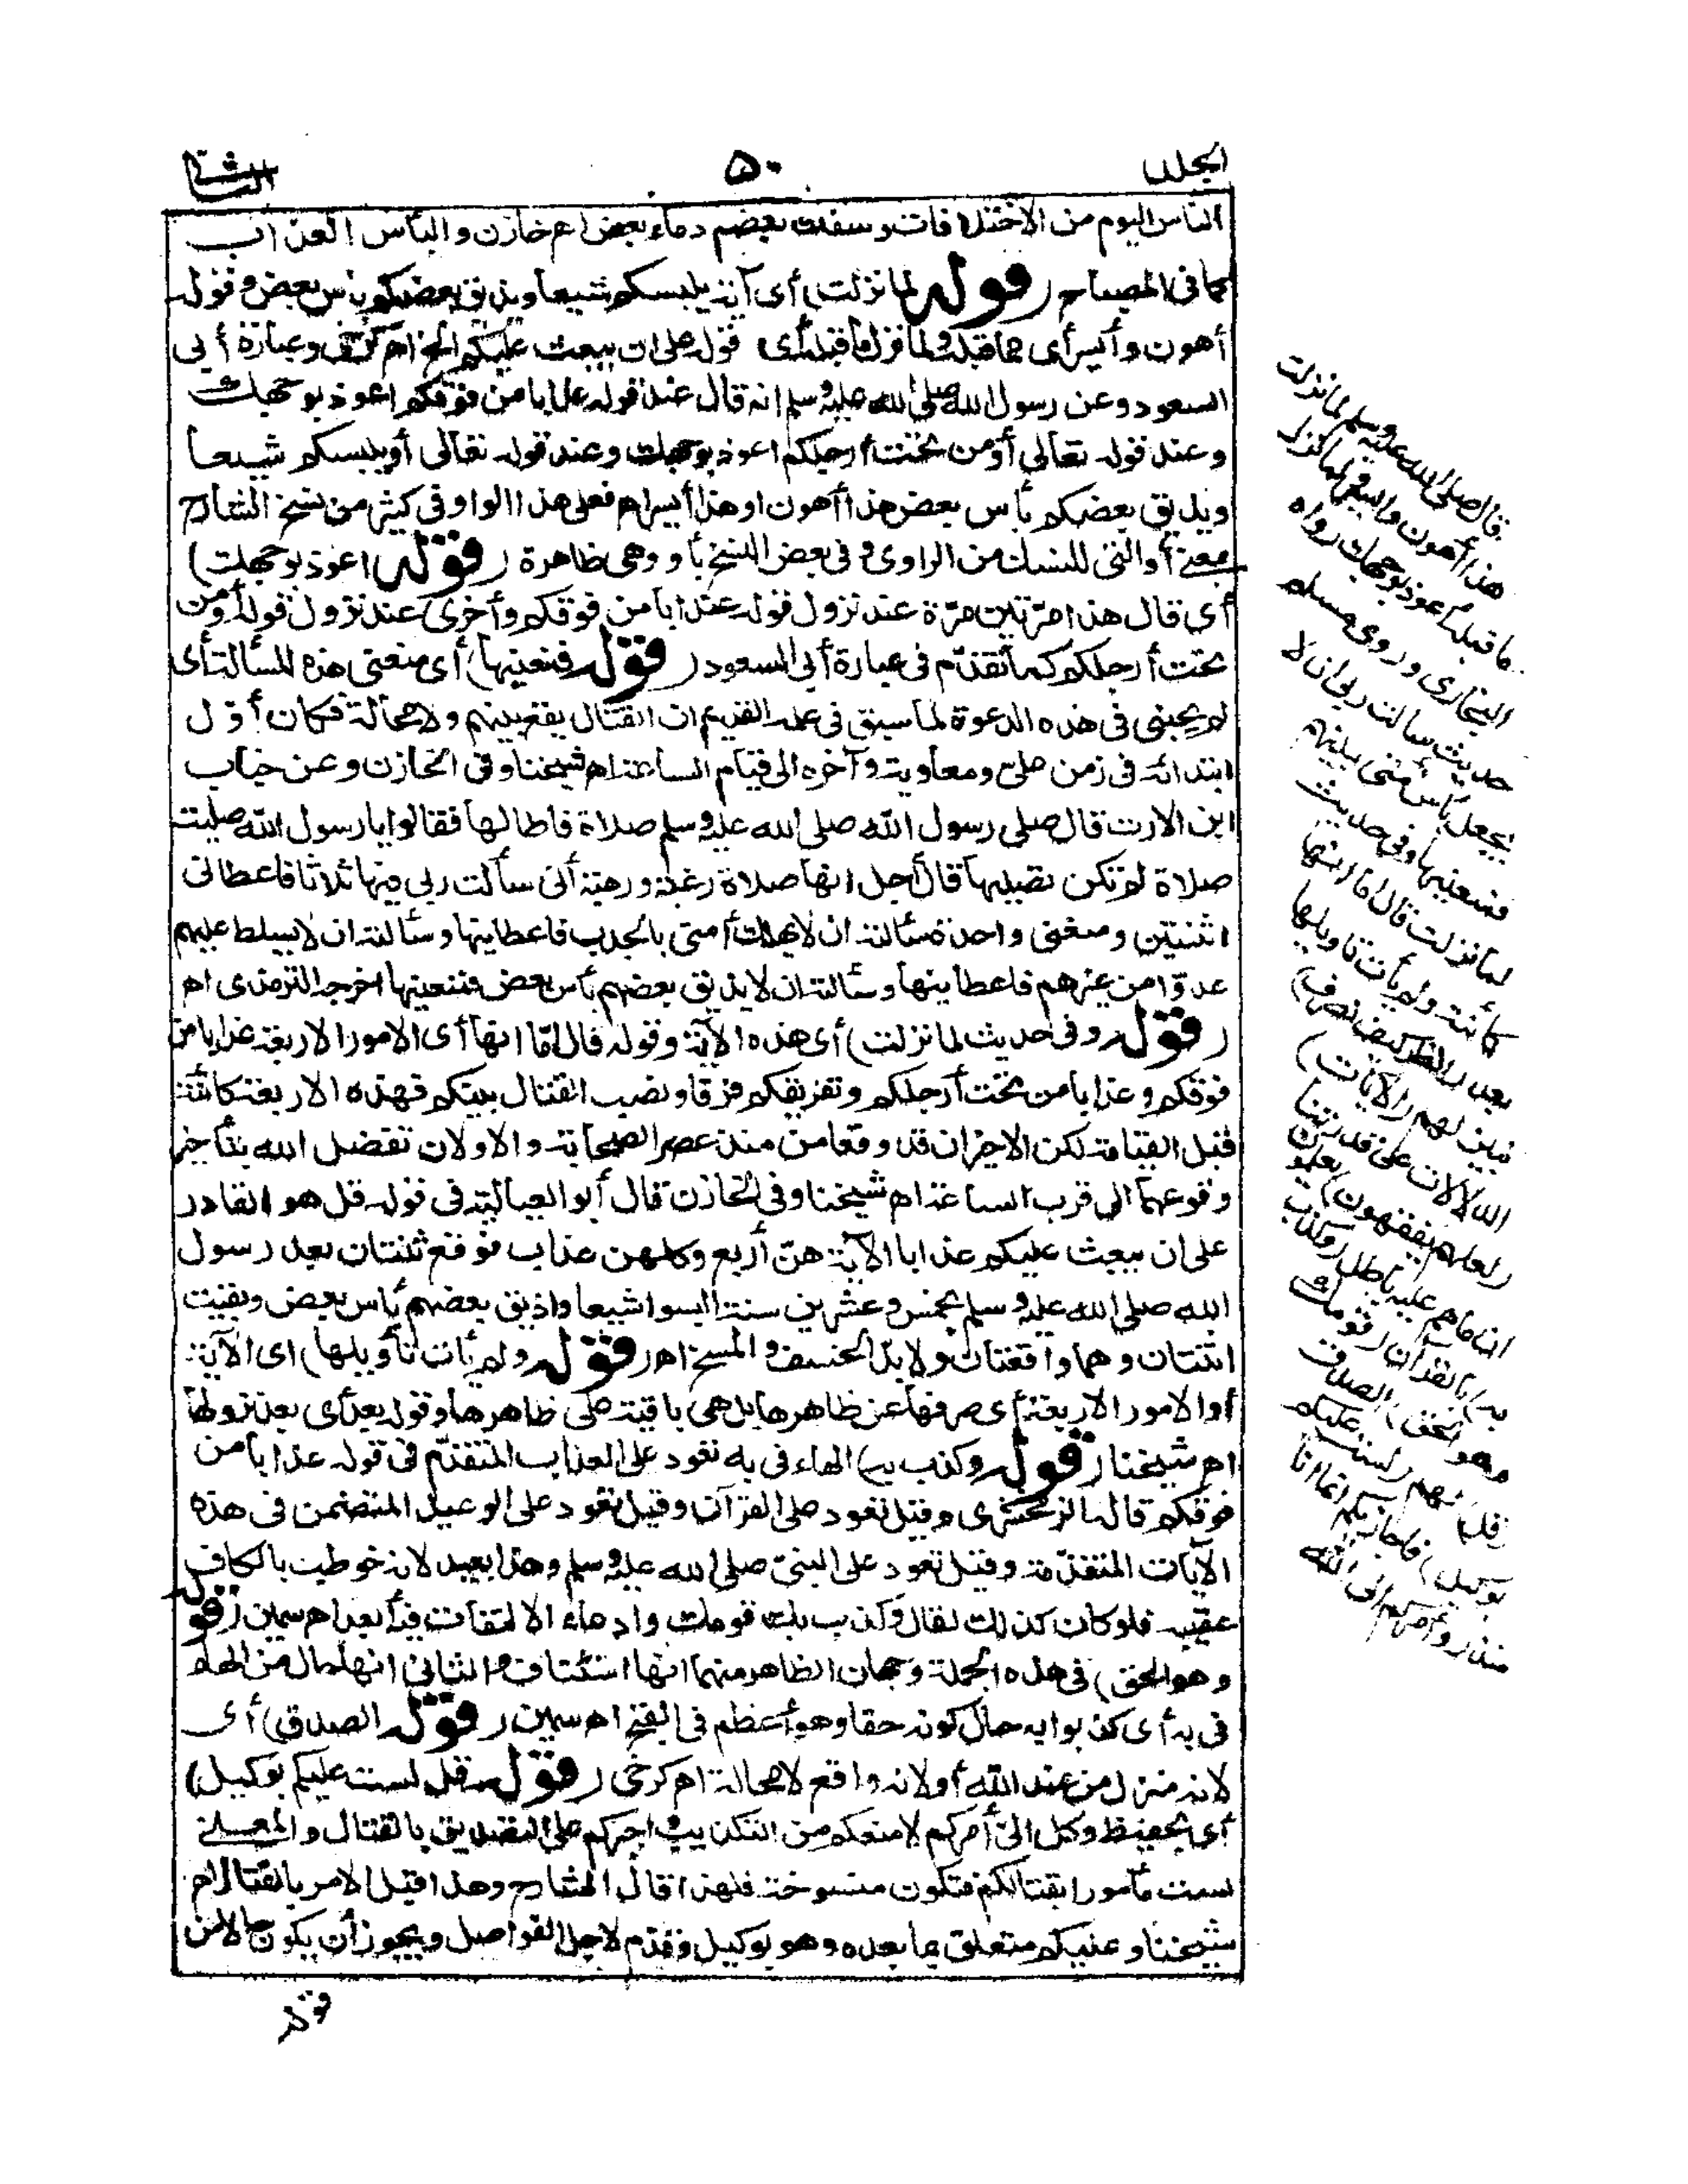 الجلد
٥٠
الثانى
الناس اليوم من الاختلافات وسفك بعضهم دماء بعض اھ خازن والبأس العذاب
كما فى المصباح (قوله لما نزلت) أى آية يلبسكم شيعا ويذيق بعضكم بأس بعض وقوله
أهون وأيسر أى مما قبله ولما نزل ما قبله أى قوله على ان يبعث عليكم الخ اھ كرخى وعبارة أبى
السعود وعن رسول الله صلى الله عليه وسلم انه قال عند قوله عذابا من فوقكم اعوذ بوجهك
وعند قوله تعالى أو من تحت أرجلكم اعوذ بوجهك وعند قوله تعالى أو يلبسكم شيعا
ويذيق بعضكم بأس بعض هذا أهون او هذا أيسر اھ فعلى هذا الواو فى كثير من نسخ الشارح
بمعنى أو التى للشك من الراوى وفى بعض النسخ بأو وهى ظاهرة (قوله اعوذ بوجهك)
أى قال هذا مرّتين مرّة عند نزول قوله عذابا من فوقكم وأخرى عند نزول قوله أو من
تحت أرجلكم كما تقدّم فى عبارة أبى السعود (قوله فمنعنيها) أى منعنى هذه المسألة أى
لم يجبنى فى هذه الدعوة لما سبق فى علمه القديم ان القتال يقع بينهم ولا محالة فكان أوّل
ابتدائه فى زمن على ومعاوية وآخره الى قيام الساعة اھ شيخنا وفى الخازن وعن خباب
ابن الارت قال صلى رسول الله صلى الله عليه وسلم صلاة فاطالها فقالوا يا رسول الله صليت
صلاة لم تكن تصليها قال أجل انها صلاة رغبة ورهبة أنى سألت ربى فيها ثلاثا فاعطانى
اثنتين ومنعنى واحدة سألته ان لا يهلك أمتى بالجدب فاعطانيها وسألته ان لا يسلط عليهم
عدوّا من غيرهم فاعطانيها وسألته ان لا يذيق بعضهم بأس بعض فمنعنيها اخرجه الترمذى اھ
(قوله وفى حديث لما نزلت) أى هذه الآية وقوله قال أمّا انها أى الامور الاربعة عذابا من
فوقكم وعذابا من تحت أرجلكم وتفريقكم فرقا ونصب القتال بينكم فهذه الاربعة كائنة
قبل القيامة لكن الاخيران قد وقعا من منذ عصر الصحابة والاولان تفضل الله بتأخير
وقوعهما الى قرب الساعة اھ شيخنا وفى الخازن قال أبو العالية فى قوله قل هو القادر
على ان يبعث عليكم عذابا الآية هنّ أربع وكلهن عذاب فوقع ثنتان بعد رسول
الله صلى الله عليه وسلم بخمس وعشرين سنة البسوا شيعا واذيق بعضهم بأس بعض وبقيت
اثنتان وهما واقعتان ولا بد الخسف والمسخ اھ (قوله ولم يأت تأويلها) اى الآية
أو الامور الاربعة أى صرفها عن ظاهرها بل هى باقية على ظاهرها وقوله بعد أى بعد نزولها
اھ شيخنا (قوله وكذب به) الهاء فى به تعود على العذاب المتقدّم فى قوله عذابا من
فوقكم قاله الزمخشرى وقيل تعود على القرآن وقيل تعود على الوعيد المتضمن فى هذه
الآيات المتقدّمة وقيل تعود على النبىّ صلى الله عليه وسلم وهذا بعيد لانه خوطب بالكاف
عقيبه فلو كان كذلك لقال وكذب بك قومك وادعاء الالتفات فيه أبعد اھ سمين (قوله
وهو الحق) فى هذه الجملة وجهان الظاهر منهما انها استئناف والثانى انها حال من الهاء
فى به أى كذبوا به حال كونه حقا وهو أعظم فى القبح اھ سمين (قوله الصدق) أى
لانه منزل من عند الله أو لانه واقع لا محالة اھ كرخى (قوله قل لست عليكم بوكيل)
أى بحفيظ وكل الىّ أمركم لامنعكم من التكذيب واجبركم على التصديق بالقتال والمعنى
لست مأمورا بقتالكم فتكون منسوخة فلهذا قال الشارح وهذا قبل الامر بالقتال اھ
شيخنا وعليكم متعلق بما بعده وهو بوكيل وقدّم لاجل الفواصل ويجوز أن يكون حالا من
قال صلى الله عليه وسلم لما نزلت
هذا أهون وأيسر ولما نزل
ما قبله أعوذ بوجهك رواه
البخارى وروى مسلم
حديث سألت ربى ان لا
يجعل بأس أمتى بينهم
فمنعنيها وفى حديث
لما نزلت قال أما انها
كائنة ولم يأت تأويلها
بعد (انظر كيف نصرف)
نبين لهم (الآيات)
الدالات على قدرتنا
(لعلهم يفقهون) يعلمون
ان ما هم عليه باطل (وكذب
به) بالقرآن (قومك
وهو الحق) الصدق
(قل) لهم (لست عليكم
بوكيل) فاجازيكم انما انا
منذر وأمركم الى الله
قوله